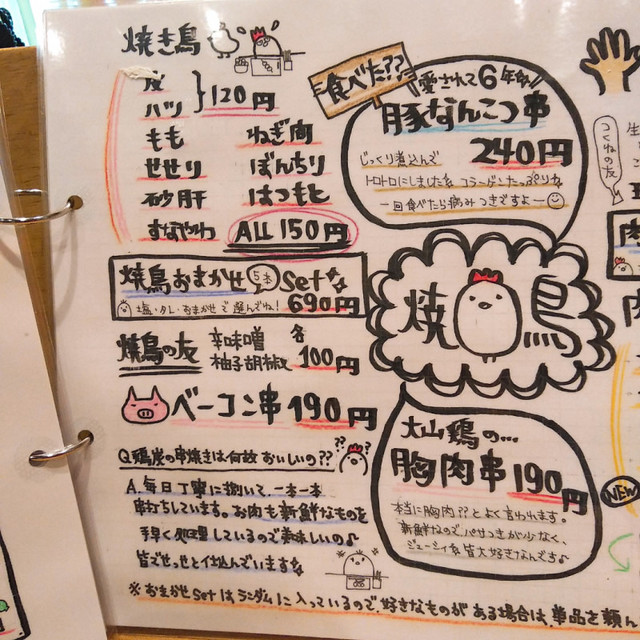 焼き鳥
皮
ハツ
}120円
もも
ねぎ肉
せせり
ぼんちり
砂肝
はつもと
すなずり
ALL 150円
焼鳥おまかせ 5本 Set
塩・タレ・おまかせで選んでね! 690円
焼鳥の友
辛味噌
柚子胡椒
各100円
ベーコン串 190円
Q鶏炭の串焼きは何故おいしいの??
A.毎日丁寧に捌いて、一本一本
串打ちしています。お肉も新鮮なものを
手早く処理しているので美味しいの♪
皆でせっせと仕込んでいます
※おまかせSetはランダムに入っているので好きなものがある場合は、単品を頼ん
食べた??
愛されて6年分!!
豚なんこつ串
240円
じっくり煮込んで
トロトロにしました。コラーゲンたっぷりね
一回食べたら病みつきですよー
焼鳥
大山鶏の...
胸肉串 190円
本当に胸肉??とよく言われます。
新鮮なのでパサつきが少なく、
ジューシィ 皆大好きなんです♪
つくねの友
NEW